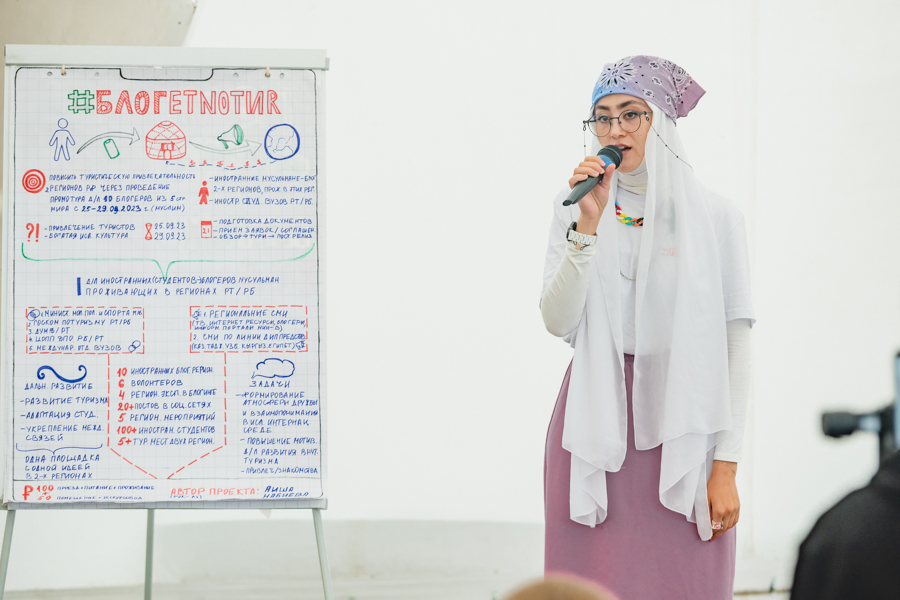 #БЛОГЕТNОТИR
ПОВЫСИТЬ ТУРИСТИЧЕСКУЮ ПРИВЛЕКАТЕЛЬНОСТЬ
2 РЕГИОНОВ РФ ЧЕРЕЗ ПРОВЕДЕНИЕ
ПРОМОТУРА Д/Я 10 БЛОГЕРОВ ИЗ 5
МИРА С 25-29.09.2023 г. (МУСЛИМ)
- ИНОСТРАННЫЕ МУСУЛЬМАНЕ-БЛО
2-Х РЕГИОНОВ, ПРОЖ. В ЭТИХ РЕГ.
- ИНОСТР. СТУД. ВУЗОВ РТ/РБ.
?!
- ПРИВЛЕЧЕНИЕ ТУРИСТОВ
- БОГАТАЯ ИСЛ. КУЛЬТУРА
25.09.23
29.09.23
- ПОДГОТОВКА ДОКУМЕНТОВ
- ПРИЕМ ЗАЯВОК/СОГЛАШЕН
- ОБЗОР→ТУРИ→
Д/Я ИНОСТРАННЫХ (СТУДЕНТОВ) БЛОГЕРОВ МУСУЛЬМАН
ПРОЖИВАЮЩИХ В РЕГИОНАХ РТ/РБ
2. ГОСКОМ ПО ТУРИЗМУ РТ/РБ
3. ДУМ РБ/РТ
4. ЦОПП ВПО РБ/РТ
5. МЕЖДУНАР. ОТД. ВУЗОВ
1. РЕГИОНАЛЬНЫЕ СМИ
(ТВ, ИНТЕРНЕТ РЕСУРСЫ, БЛОГЕРЫ,
ИНФОРМ ПОРТАЛЫ МИН-В)
2. СМИ ПО ЛИНИИ ДИППРЕДСТ
(КАЗ, ТАДЖ, УЗБ, КЫРГЫЗ, ЕГИПЕТ)
ДАЛЬН. РАЗВИТИЕ
- РАЗВИТИЕ ТУРИЗМА
- АДАПТАЦИЯ СТУД.
- УКРЕПЛЕНИЕ МЕЖД.
СВЯЗЕЙ
ОДНА ПЛОЩАДКА
С ОДНОЙ ИДЕЕЙ
В 2-Х РЕГИОНАХ
10 ИНОСТРАННЫХ БЛОГ. РЕГИОН.
6 ВОЛОНТЕРОВ
4 РЕГИОН. ЭКСП. В БЛОГИНГЕ
20+ ПОСТОВ В СОЦ. СЕТЯХ
5 РЕГИОН. МЕРОПРИЯТИЙ
100+ ИНОСТРАН. СТУДЕНТОВ
5+ ТУР. МЕСТ ДВУХ РЕГИОН.
ЗАДАЧИ
- ФОРМИРОВАНИЕ
АТМОСФЕРЫ ДРУЖБЫ
И ВЗАИМОПОНИМАНИЯ
В ИСЛ. ИНТЕРНАЦ
СРЕДЕ
- ПОВЫШЕНИЕ МОТИВ.
Д/Я РАЗВИТИЯ ВНУТ.
ТУРИЗМА
- ПРИВЛЕЧ/ЗНАКОМСТВА
₽ 100 ПРОЕЗД+ПИТАНИЕ+ПРОЖИВАНИЕ
АВТОР ПРОЕКТА: АИША